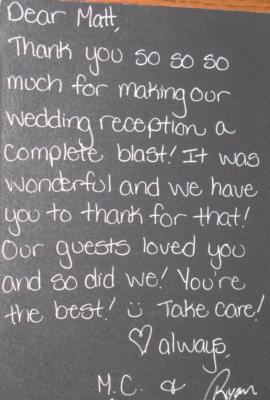 Dear Matt,
Thank you so so so
much for making our
wedding reception a
complete blast! It was
wonderful and we have
you to thank for that!
Our guests loved you
and so did we! You're
the best! :) Take care!
♡ always,
M.C. & Ryan